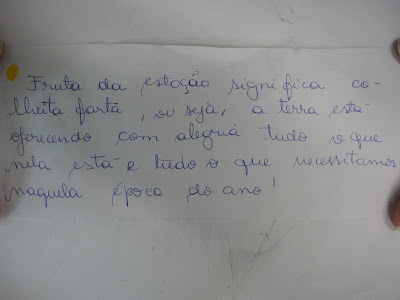 Fruta da estação significa co-
lheita farta, ou seja, a terra está
oferecendo com alegria tudo o que
nela está e tudo o que necessitamos
naquela época do ano!